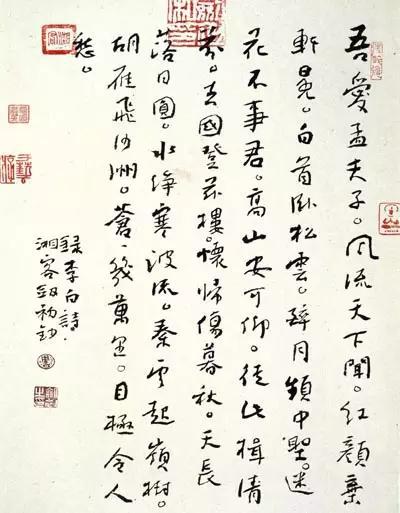 吾愛孟夫子。風流天下聞。紅顏棄
軒冕。白首臥松雲。醉月頻中聖。迷
花不事君。高山安可仰。徒此揖清
芬。去國登茲樓。懷歸傷暮秋。天長
落日圓。水淨寒波流。秦雲起嶺樹。
胡雁飛沙洲。蒼〻幾萬里。目極令人
愁。
錄李白詩.
湘客